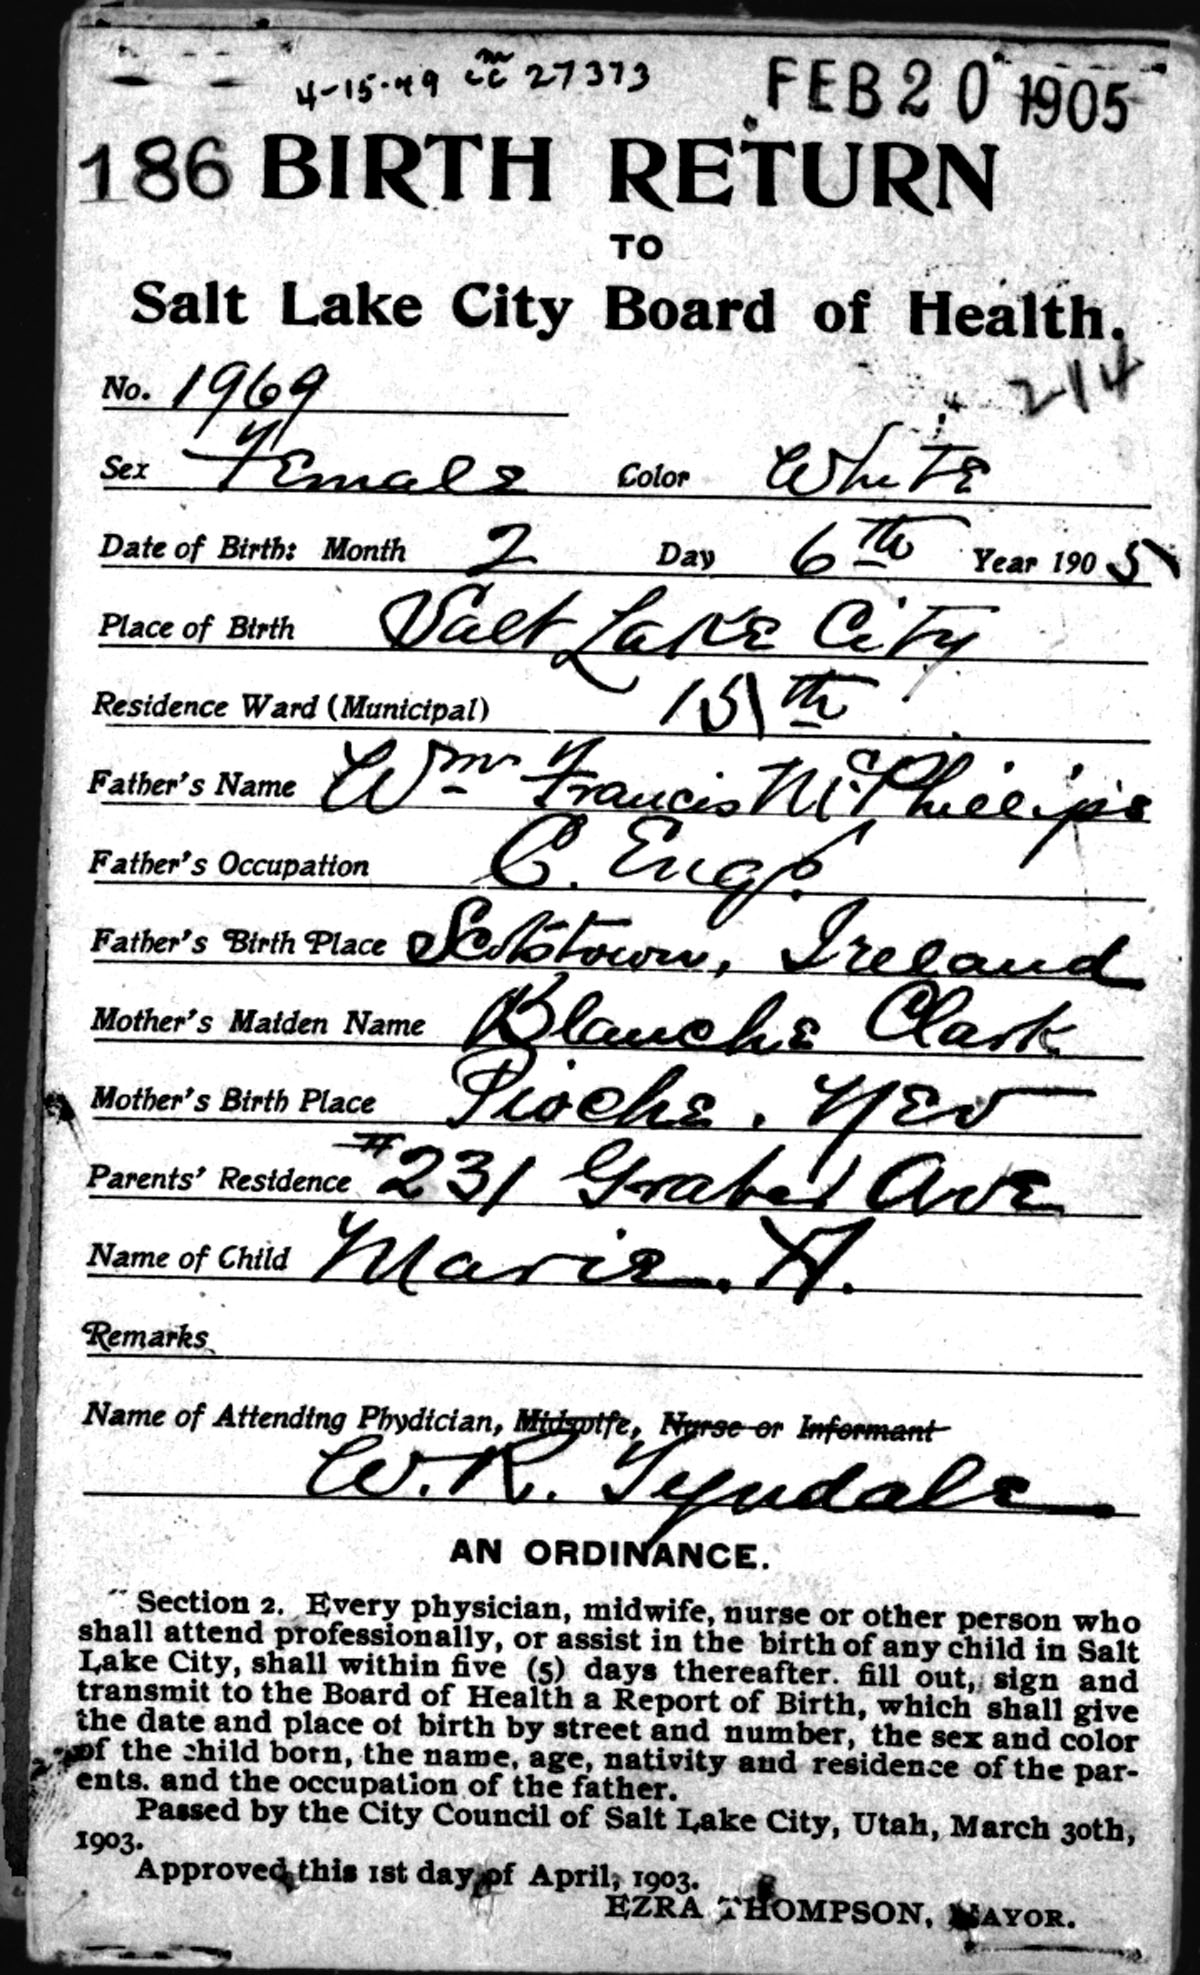 4-15-49 mcc 27373 FEB 20 1905
186 BIRTH RETURN
TO
Salt Lake City Board of Health.
214
No. 1969
Sex Female Color White
Date of Birth: Month 2 Day 6th Year 1905
Place of Birth Salt Lake City
Residence Ward (Municipal) 15th
Father's Name Wm Francis McPhillips
Father's Occupation C. Engr.
Father's Birth Place Scotstown, Ireland
Mother's Maiden Name Blanche Clark
Mother's Birth Place Pioche. Nev
Parents' Residence #231 Ave
Name of Child Marie. A.
Remarks
Name of Attending Phydician, Midwife, Nurse or Informant
W. R. Tyndale
AN ORDINANCE.
Section 2. Every physician, midwife, nurse or other person who
shall attend professionally, or assist in the birth of any child in Salt
Lake City, shall within five (5) days thereafter. fill out, sign and
transmit to the Board of Health a Report of Birth, which shall give
the date and place of birth by street and number, the sex and color
of the child born, the name, age, nativity and residence of the par-
ents. and the occupation of the father.
Passed by the City Council of Salt Lake City, Utah, March 30th,
1903.
Approved this 1st day of April, 1903.
EZRA THOMPSON, MAYOR.